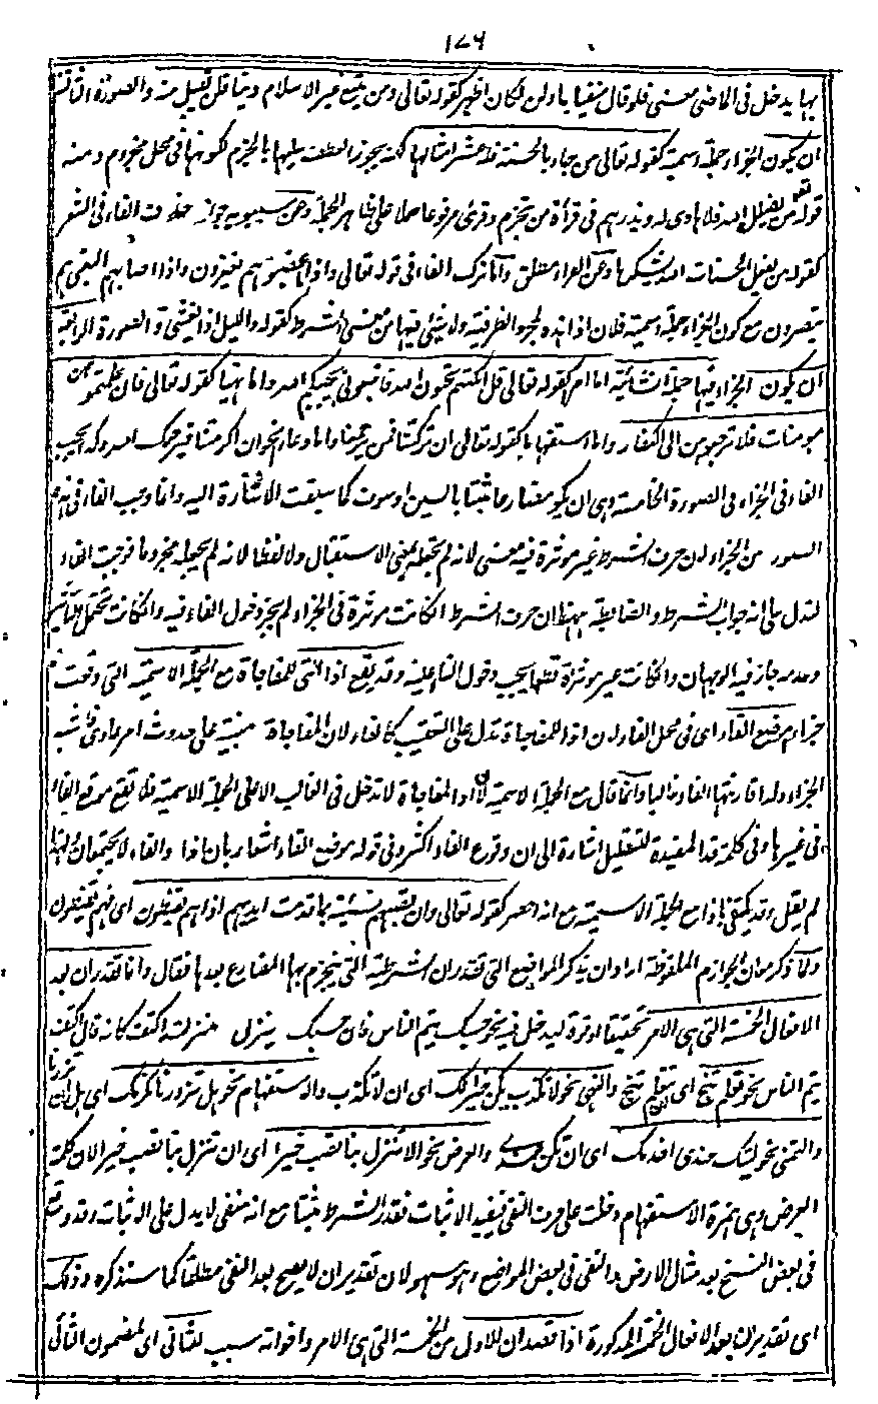 ۱۷۶
بها يدخل فى الماضى معنى فلو قال منفيا بما ولن لكان اظهر كقوله تعالى ومن يبتغ غير الاسلام دينا فلن يقبل منه والصورة الثالثة
ان يكون الجزاء جملة اسمية كقوله تعالى من جاء بالحسنة فله عشر امثالها لكنه يجوز العطف عليها بالجزم لكونها فى محل مجزوم ومنه
قوله تعالى من يضلل الله فلا هادى له ويذرهم فى قرأة من يجزم وقرئ مرفوعا حملا على ظاهر الجملة وعن سيبويه جواز حذف الفاء فى الشعر
كقوله من يفعل الحسنات الله يشكرها وعن الفراء مطلق واما ترك الفاء فى قوله تعالى واذا ما غضبوا هم يغفرون واذا اصابهم البغى هم
ينتصرون مع كون الجزاء جملة اسمية فلان اذا هذه لمجرد الظرفية ولا شئ فيها من معنى الشرط كقوله والليل اذا يغشى والصورة الرابعة
ان يكون الجزاء فيها جملة انشائية اما امر كقوله تعالى قل ان كنتم تحبون الله فاتبعونى يحببكم الله واما نهيا كقوله تعالى فان علمتموهن
مومنات فلا ترجعوهن الى الكفار واما استفهاما كقوله تعالى ان تركتنا فمن يرحمنا واما دعاء نحو ان اكرمتنا فيرحمك الله وكذا يجب
الفاء فى الجزاء فى الصورة الخامسة وهى ان يكون مضارعا مثبتا بالسين او سوف كما سبقت الاشارة اليه وانما وجب الفاء فى هذه
الصور من الجزاء لان حرف الشرط غير موثرة فيه معنى لانه لم يجعله بمعنى الاستقبال ولا لفظا لانه لم يجعله مجزوما فوجبت الفاء
لتدل على انه جواب الشرط والضابطة ههنا ان حرف الشرط ان كانت موثرة فى الجزاء لم يجز دخول الفاء فيه وان كانت تحتمل التأثير
وعدمه جاز فيه الوجهان وان كانت غير موثرة قطعا يجب دخول الفاء عليه وقد يقع اذا التى للمفاجاة مع الجملة الاسمية التى وقعت
جزاء موضع الفاء اى فى محل الفاء لان اذا للمفاجاة تدل على التعقيب كالفاء لان المفاجاة مبنية على حدوث امر بعد
الجزاء ولذا قارنتها الفاء وانما قال مع الجملة الاسمية لان اذا المفاجاة لا تدخل فى الغالب الا على الجملة الاسمية فلا تقع موقع الفاء
فى غيرها وفى كلمة قد المفيدة للتقليل اشارة الى ان وقوع الفاء اكثر وفى قوله موضع الفاء اشعار بان اذا والفاء لا يجتمعان ولهذا
لم يقل وقد يكتفى باذا مع الجملة الاسمية مع انه اخصر كقوله تعالى وان تصبهم سيئة بما قدمت ايديهم اذا هم يقنطون اى فهم يقنطون
ولما ذكر من الجوازم الملفوظة اراد ان يذكر المواضع التى تقدر ان الشرطية التى ينجزم بها المضارع بعدها فقال وانما تقدر ان بعد
الافعال الخمسة التى هى الامر تحقيقا او قوة ليدخل فيه نحو حسبك ينم الناس فان حسبك ينزل منزلة اكتف كانه قال اكتف
ينم الناس نحو تعلم تنج اى ان تتعلم تنج والنهى نحو لا تكذب يكن خيرا لك اى ان لا تكذب والاستفهام نحو هل تزورنا نكرمك اى هل ان تزورنا
والتمنى نحو ليتك عندى اخدمك اى ان تكن عندى والعرض نحو الا تنزل بنا تصب خيرا اى ان تنزل بنا تصب خيرا لان كلمة
العرض وهى همزة الاستفهام دخلت على حرف النفى فيفيد الاثبات فتقدر الشرط مثبتا مع انه منفى لا يدل على الاثبات وقد وقع
فى بعض النسخ بعد مثال العرض والنفى فى بعض المواضع وهو سهو لان تقدير ان لا يصح بعد النفى مطلقا كما سنذكره وذلك
اى تقدير ان بعد الافعال الخمسة المذكورة اذا قصد ان الاول من الخمسة التى هى الامر واخواته سبب للثانى اى لمضمون الثانى